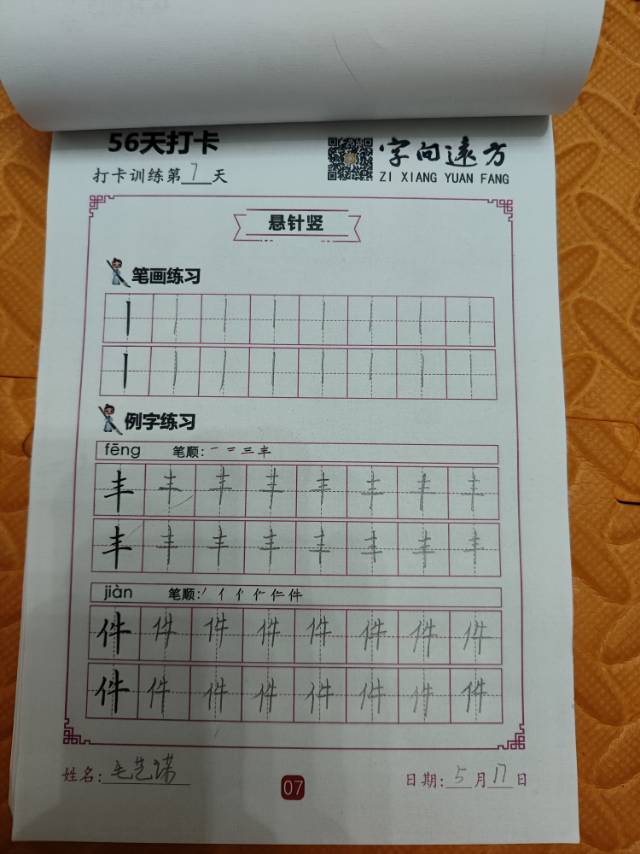 56天打卡
打卡训练第7天
字向远方
ZI XIANG YUAN FANG
悬针竖
笔画练习
丨丨丨丨丨丨丨丨
丨丨丨丨丨丨丨丨
例字练习
fēng 笔顺:一二三丰
丰丰丰丰丰丰丰丰
丰丰丰丰丰丰丰丰
jiàn 笔顺:丿亻亻亻仁件
件件件件件件件件
件件件件件件件件
姓名:毛艺
07
日期:5月17日